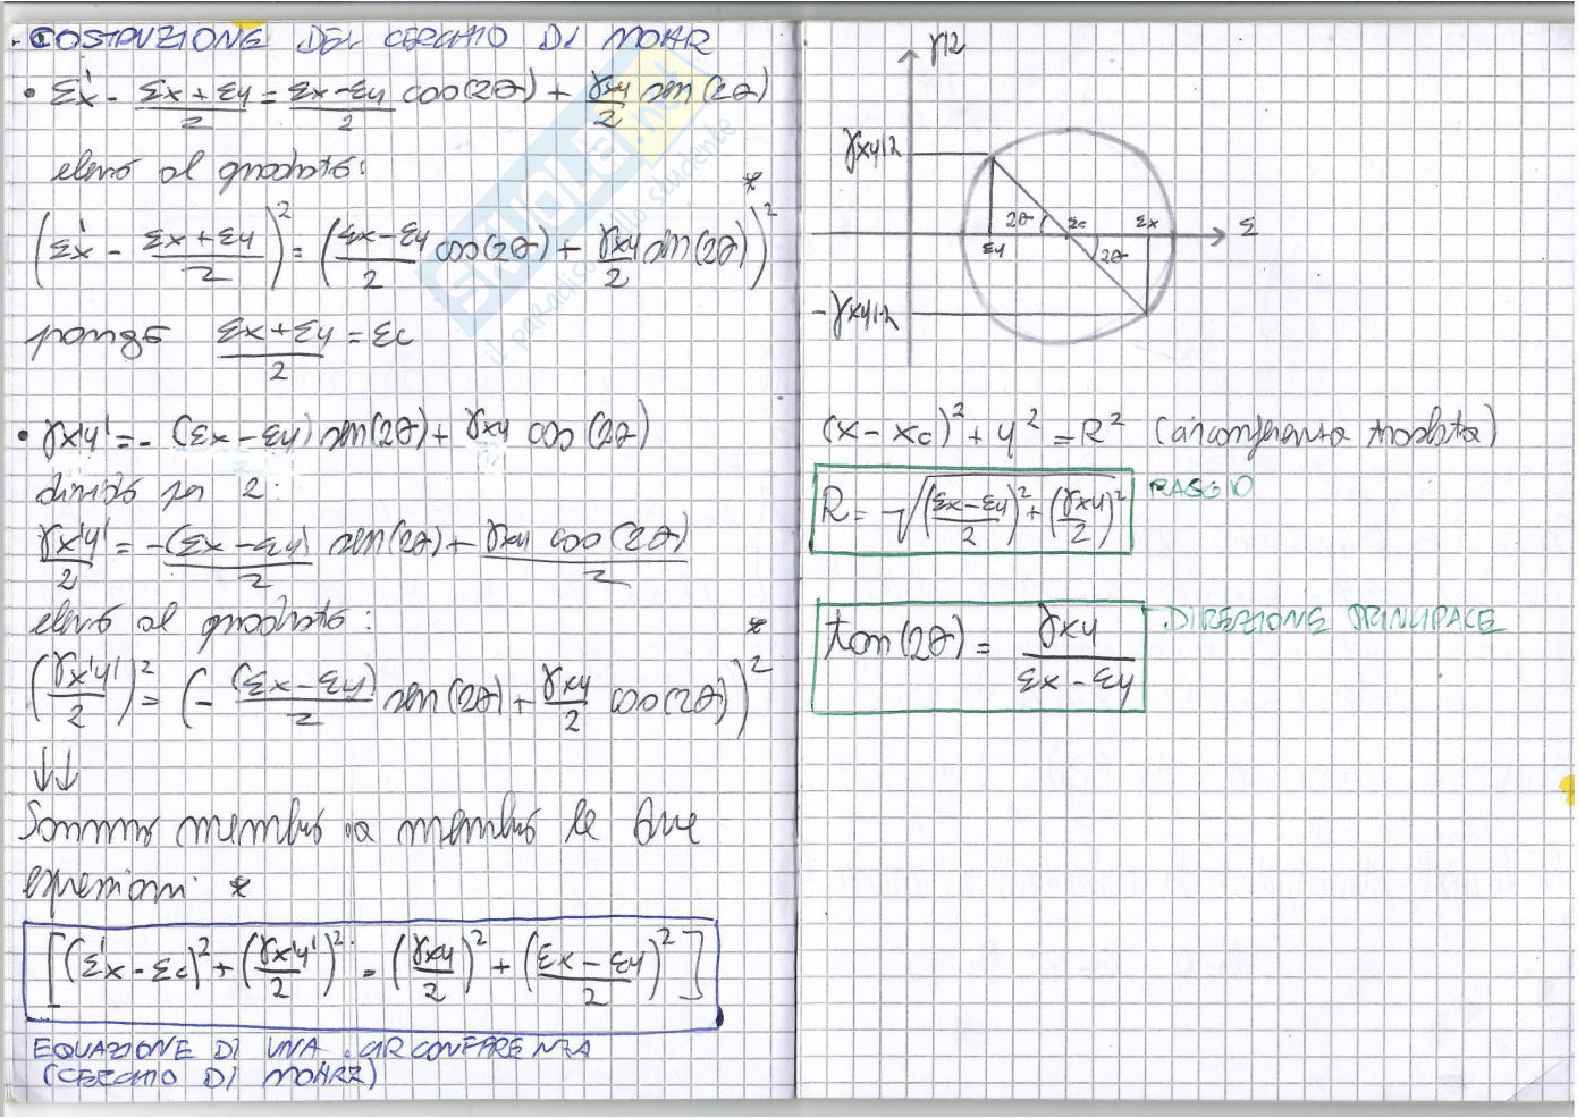 . COSTRUZIONE DEL CERCHIO DI MOHR
• εx' - (εx + εy)/2 = (εx - εy)/2 cos(2θ) + γxy/2 sen(2θ)
elevo al quadrato:
(εx' - (εx + εy)/2)² = ((εx - εy)/2 cos(2θ) + γxy/2 sen(2θ))² *
pongo (εx + εy)/2 = εc
• γx'y' = - (εx - εy) sen(2θ) + γxy cos(2θ)
divido per 2:
γx'y'/2 = - (εx - εy)/2 sen(2θ) + γxy cos(2θ)/2
elevo al quadrato:
(γx'y'/2)² = (- (εx - εy)/2 sen(2θ) + γxy/2 cos(2θ))² *
↓↓
Sommo membro a membro le due
espressioni *
[(ε'x - εc)² + (γx'y'/2)² = (γxy/2)² + ((εx - εy)/2)²]
EQUAZIONE DI UNA CIRCONFERENZA
(CERCHIO DI MOHR)
skuola.net
il paradiso dello studente
γ/2
γxy/2
2θ εc εx ε
εy 2θ
-γxy/2
(x - xc)² + y² = R² (circonferenza traslata)
R = √(((εx - εy)/2)² + (γxy/2)²) RAGGIO
tan(2θ) = γxy/(εx - εy) DIREZIONE PRINCIPALE